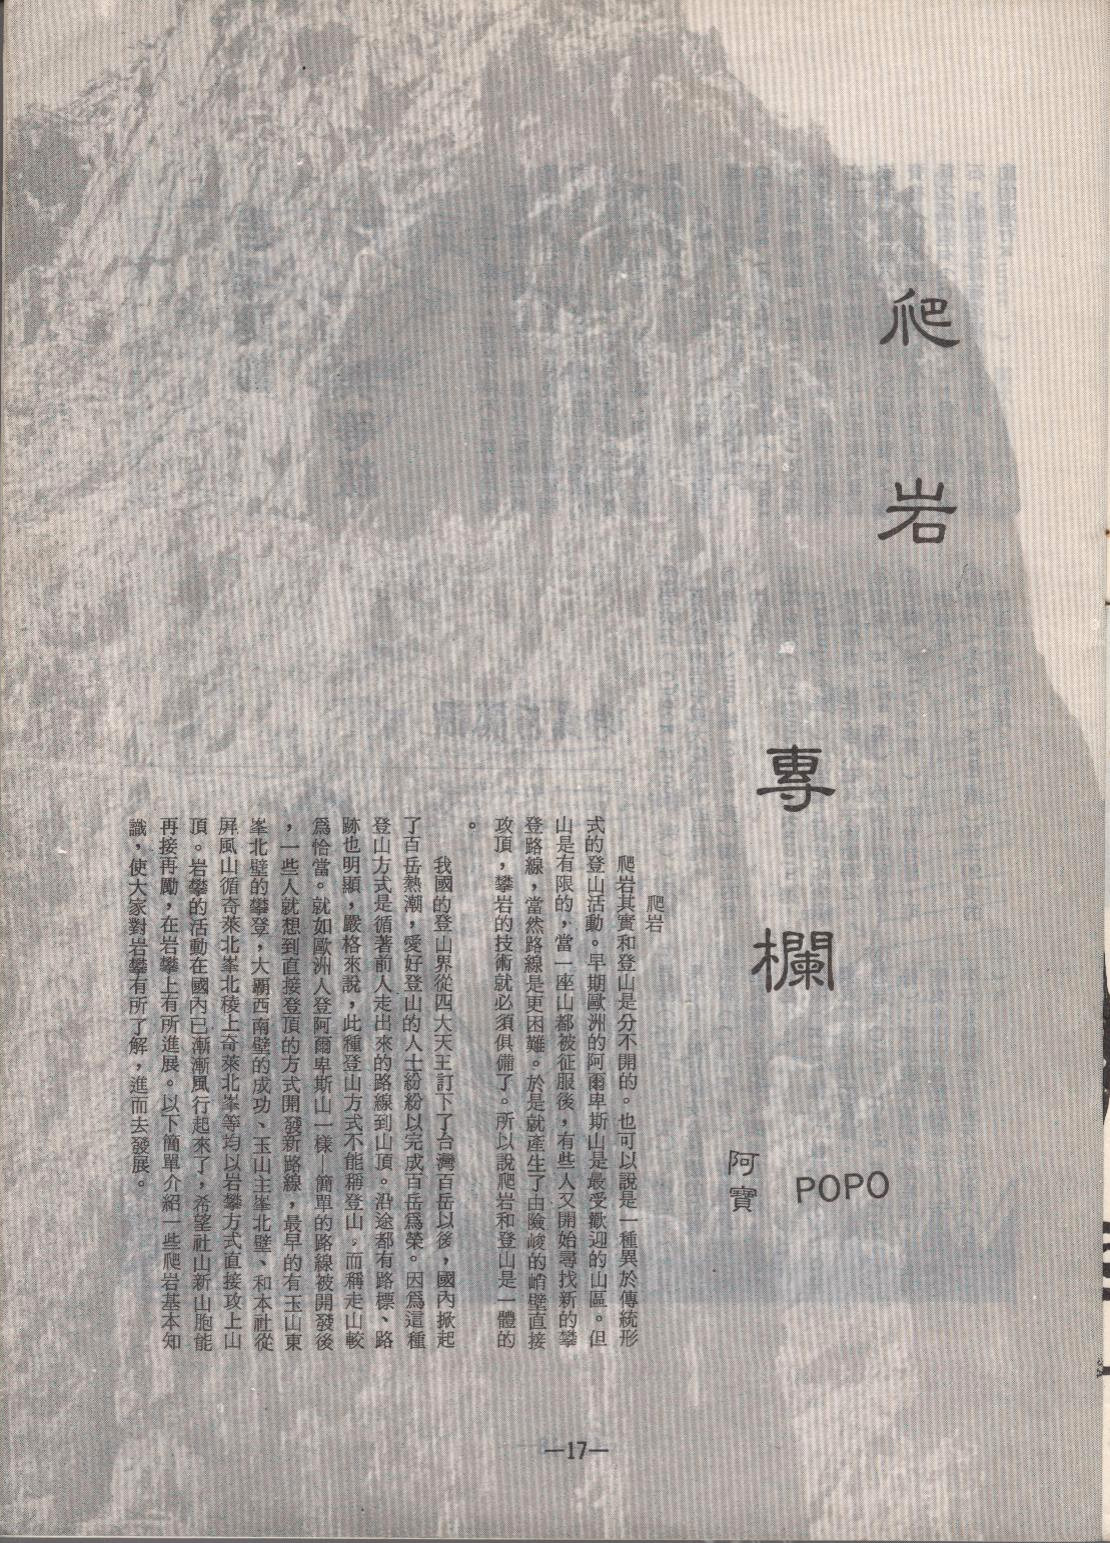 爬岩
專欄
POPO
阿寶
爬岩
爬岩其實和登山是分不開的。也可以說是一種異於傳統形
式的登山活動。早期歐洲的阿爾卑斯山是最受歡迎的山區。但
山是有限的，當一座山都被征服後，有些人又開始尋找新的攀
登路線，當然路線是更困難。於是就產生了由險峻的峭壁直接
攻頂，攀岩的技術就必須俱備了。所以說爬岩和登山是一體的
。
我國的登山界從四大天王訂下了台灣百岳以後，國內掀起
了百岳熱潮，愛好登山的人士紛紛以完成百岳爲榮。因爲這種
登山方式是循著前人走出來的路線到山頂。沿途都有路標、路
跡也明顯，嚴格來說，此種登山方式不能稱登山，而稱走山較
爲恰當。就如歐洲人登阿爾卑斯山一樣—簡單的路線被開發後
，一些人就想到直接登頂的方式開發新路線，最早的有玉山東
峯北壁的攀登，大霸西南壁的成功、玉山主峯北壁、和本社從
屏風山循奇萊北峯北稜上奇萊北峯等均以岩攀方式直接攻上山
頂。岩攀的活動在國內已漸漸風行起來了，希望社山新山胞能
再接再勵，在岩攀上有所進展。以下簡單介紹一些爬岩基本知
識，使大家對岩攀有所了解，進而去發展。
—17—